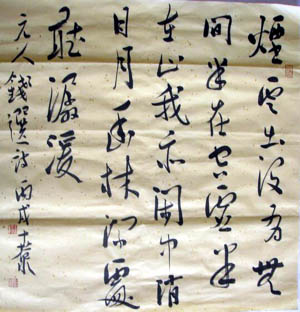 煙雲出没有無
間半在空虛半
在山我亦閑中消
日月幽林深處
聽潺湲
元人錢選詩丙戌